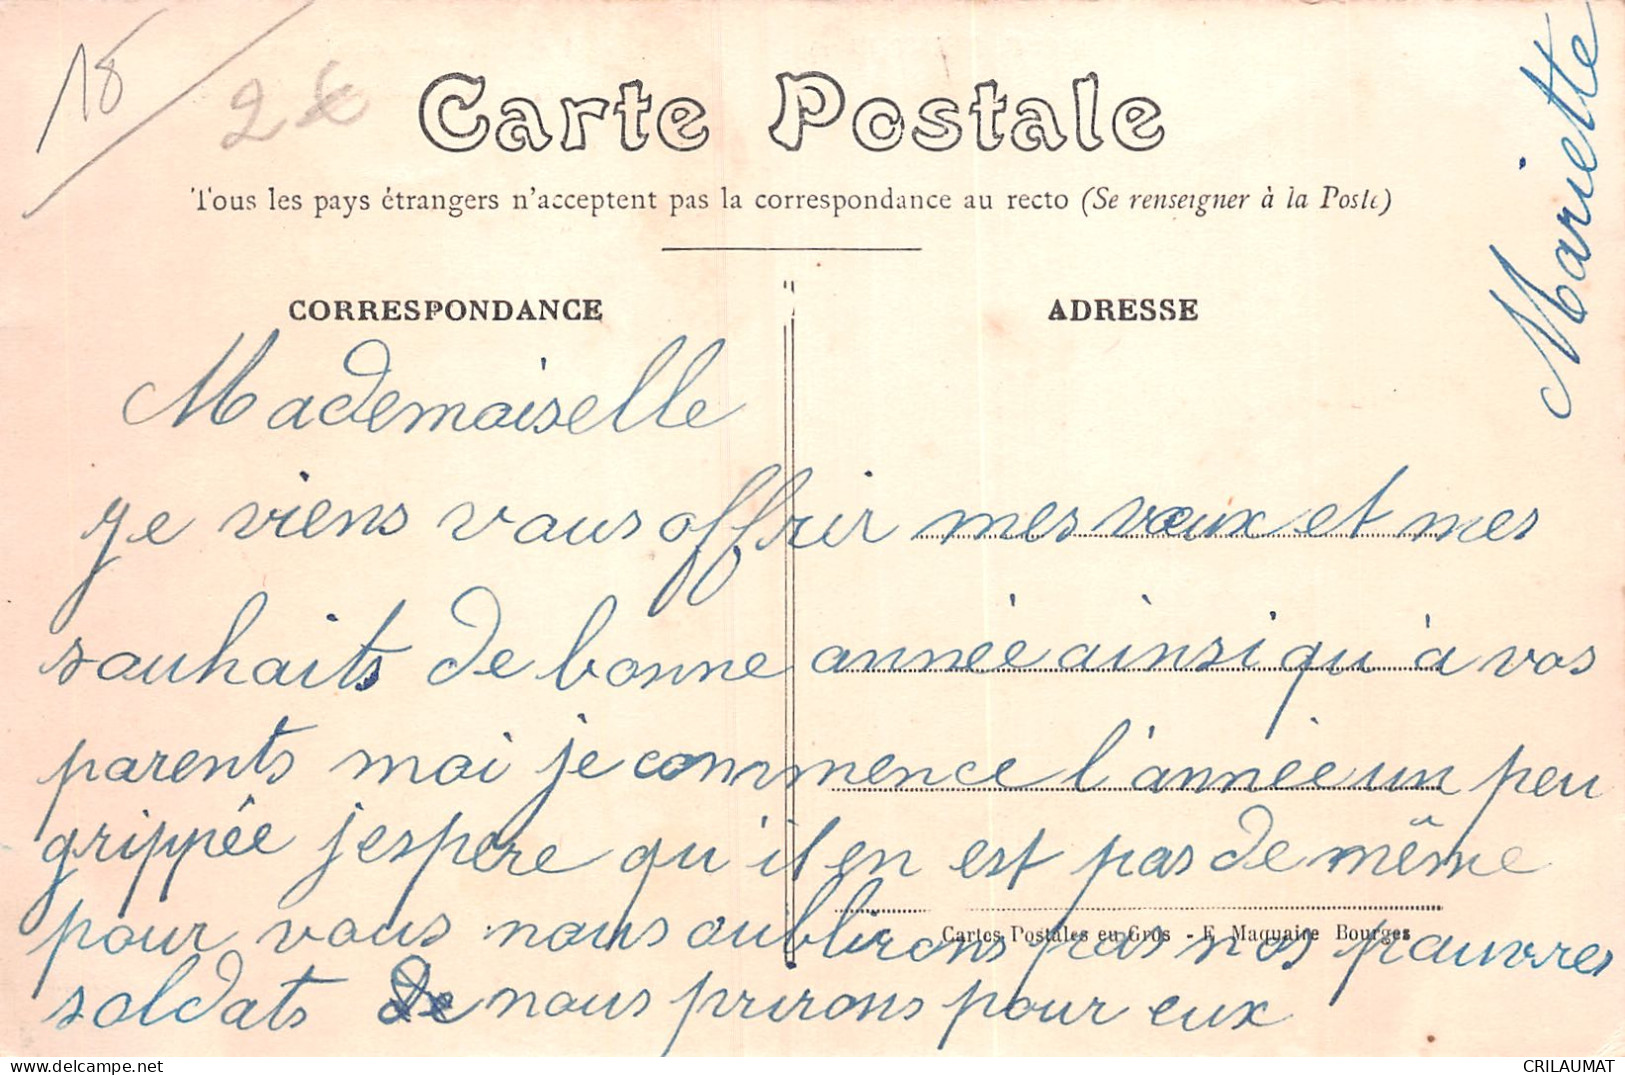 18
2€
Carte Postale
Tous les pays étrangers n'acceptent pas la correspondance au recto (Se renseigner à la Poste)
CORRESPONDANCE
ADRESSE
Mariette
Mademoiselle
je viens vous offrir mes vœux et mes
souhaits de bonne année ainsi qu'à vos
parents moi je commence l'année un peu
grippée j'espere qu'il en est pas de même
pour vous nous oublirons pas nos pauvres
Cartes Postales en Gros - E. Maquaire Bourges
soldats de nous prirons pour eux
CRILAUMAT